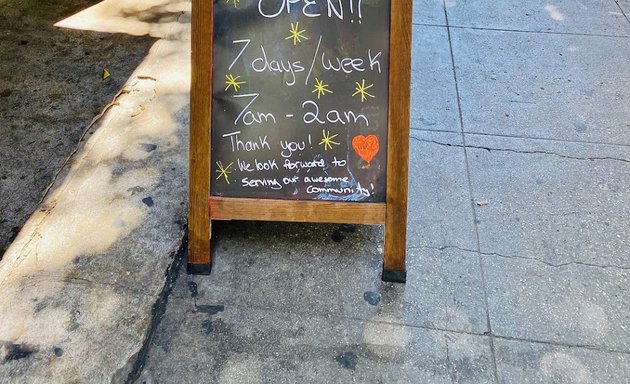 OPEN!!
7 days/week
7am - 2am
Thank you!
We look forward to
serving our awesome
community!